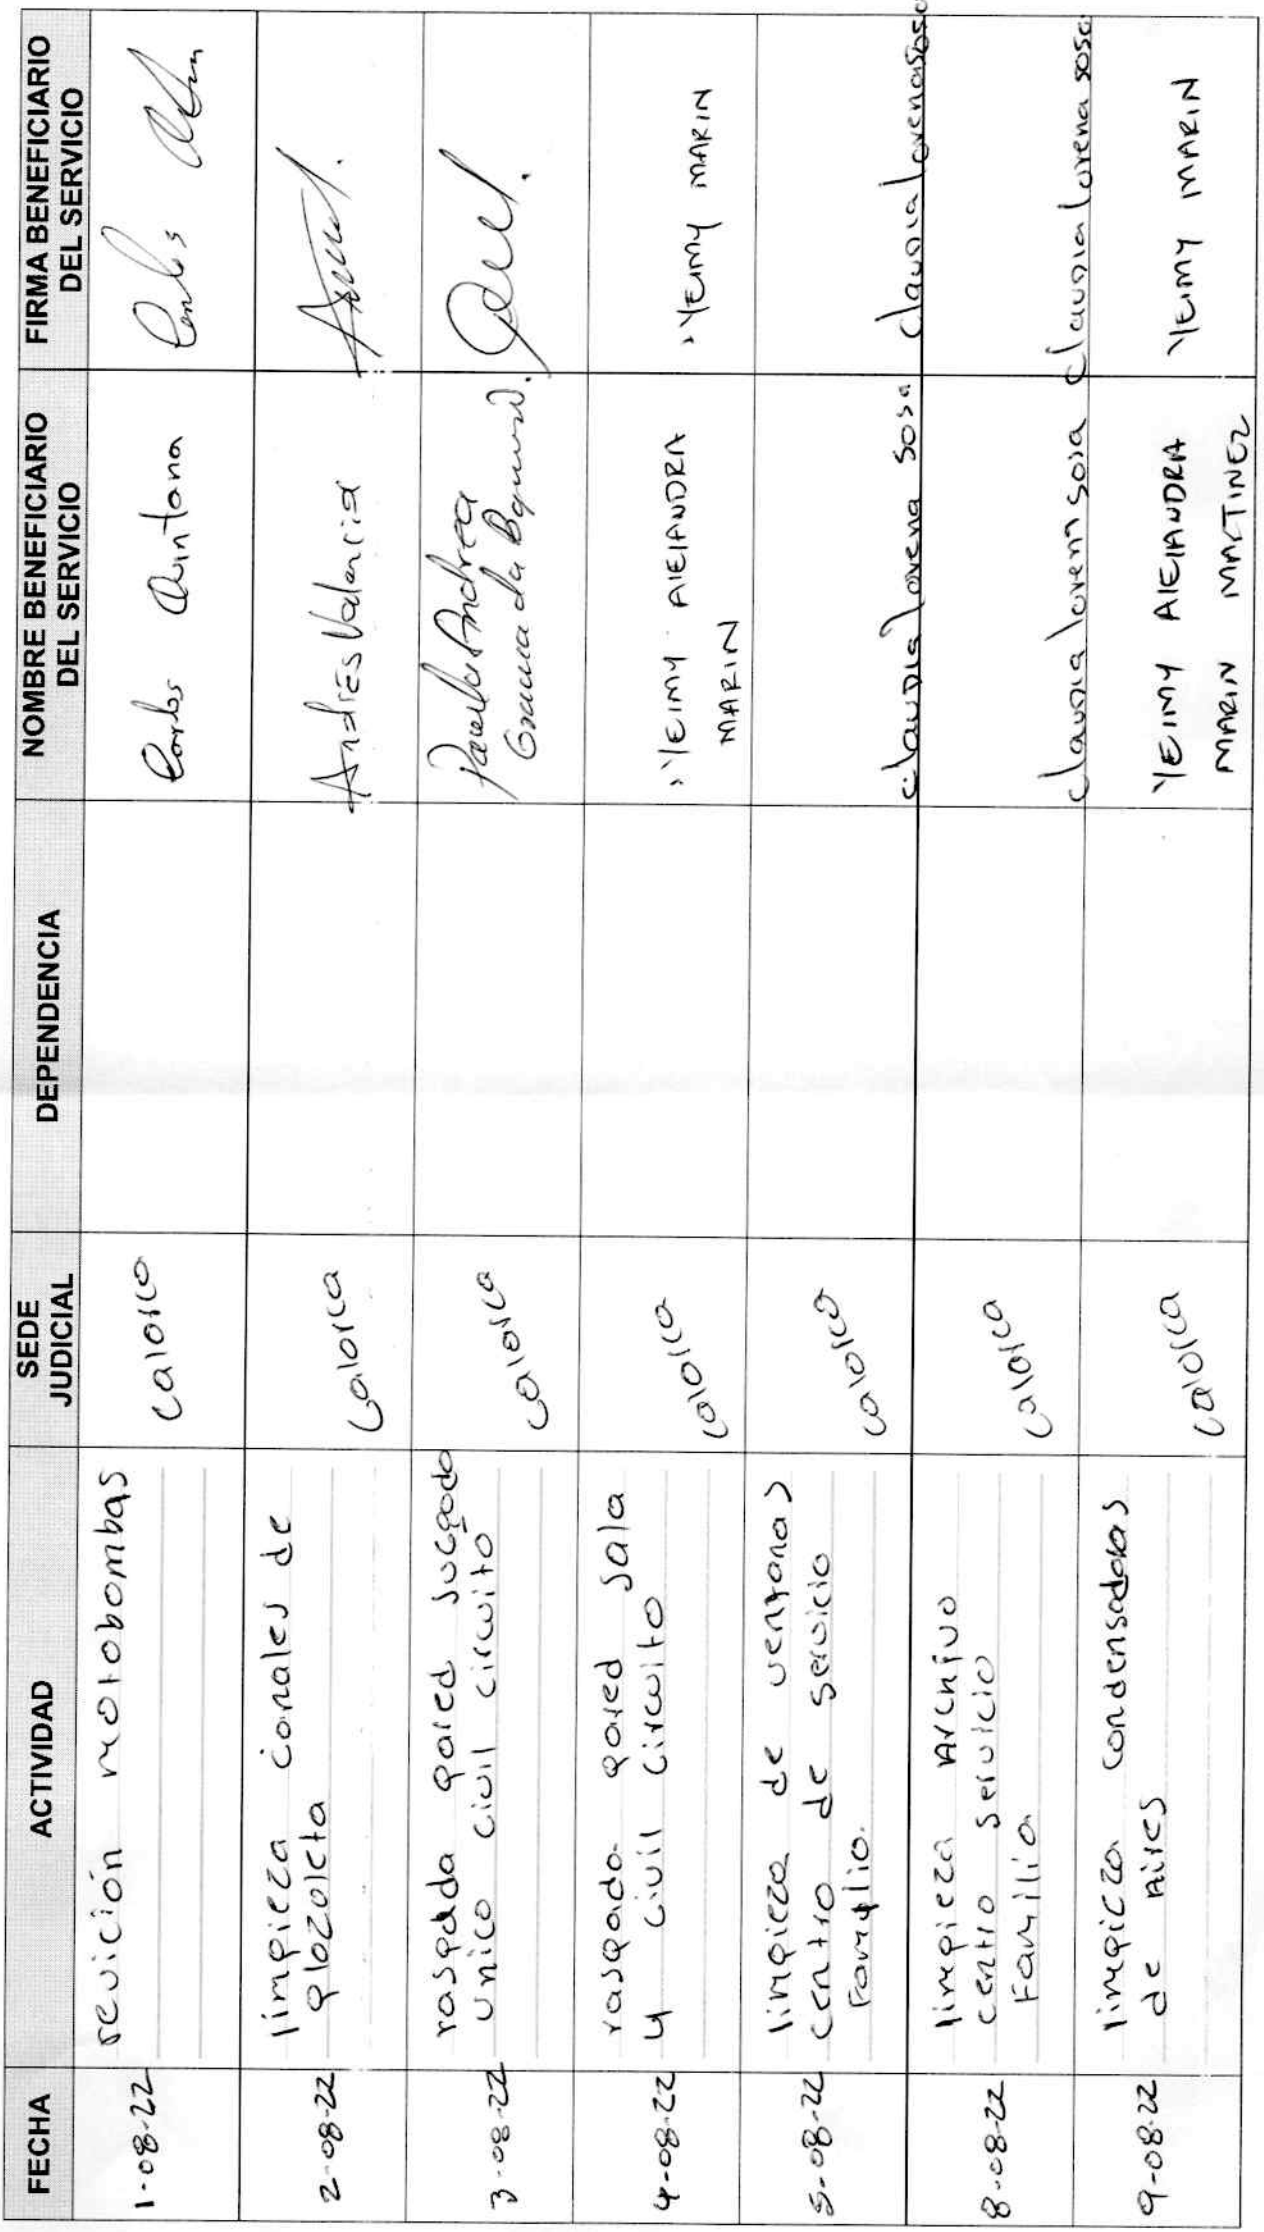 FECHA
ACTIVIDAD
SEDE
JUDICIAL
DEPENDENCIA
NOMBRE BENEFICIARIO
DEL SERVICIO
FIRMA BENEFICIARIO
DEL SERVICIO
1-08-22
revición motobombas
calorca
Carlos Quintana
Carlos
2-08-22
limpieza canales de
plazoleta
calorca
Andrés Valencia
3-08-22
raspada pared juzgado
unico civil circuito
calorca
Paula Andrea
4-08-22
raspado pared sala
4 civil circuito
calorca
YEIMY AlEJANDRA
MARIN
YEIMY MARIN
5-08-22
limpieza de ventanas
centro de servicio
Familia.
calorca
claudia lorena sosa
claudia lorena sosa
8-08-22
limpieza Archivo
centro servicio
Familia
calorca
claudia lorena sosa
claudia lorena sosa
9-08-22
limpieza condensadoras
de Aires
calorca
YEIMY AlEJANDRA
MARIN MARTINEZ
YEIMY MARIN